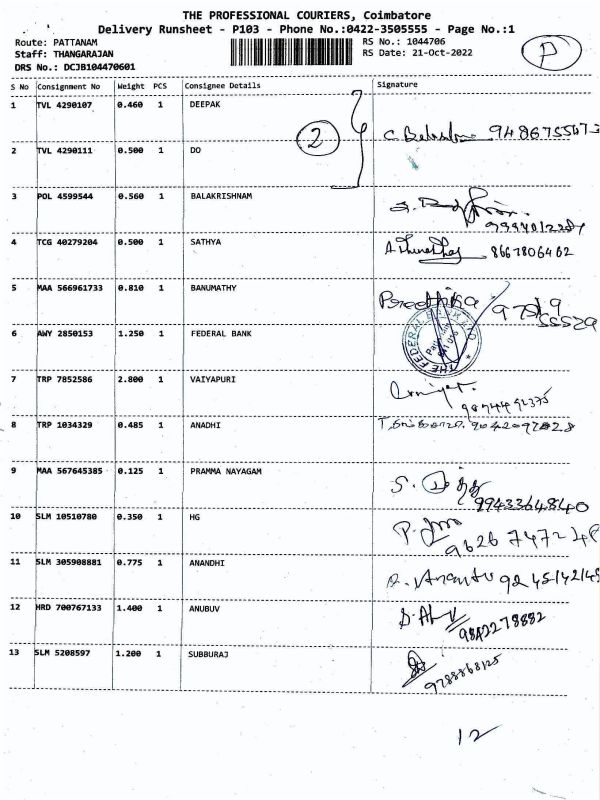 THE PROFESSIONAL COURIERS, Coimbatore
Delivery Runsheet - P103 - Phone No.:0422-3505555 - Page No.:1
Route: PATTANAM
RS No.: 1044706
Staff: THANGARAJAN
RS Date: 21-Oct-2022
DRS No.: DCJB104470601
P
S No Consignment No Weight PCS Consignee Details Signature
1 TVL 4290107 0.460 1 DEEPAK
2
2 TVL 4290111 0.500 1 DO
3 POL 4599544 0.560 1 BALAKRISHNAM
4 TCG 40279204 0.500 1 SATHYA
8667806462
5 MAA 566961733 0.810 1 BANUMATHY
6 AWY 2850153 1.250 1 FEDERAL BANK
THE FEDERAL
7 TRP 7852586 2.800 1 VAIYAPURI
8 TRP 1034329 0.485 1 ANADHI
9042097828
9 MAA 567645385 0.125 1 PRAMMA NAYAGAM
9943364840
10 SLM 10510780 0.350 1 HG
11 SLM 305908881 0.775 1 ANANDHI
12 HRD 700767133 1.400 1 ANUBUV
9842278882
13 SLM 5208597 1.200 1 SUBBURAJ
9788868125
12